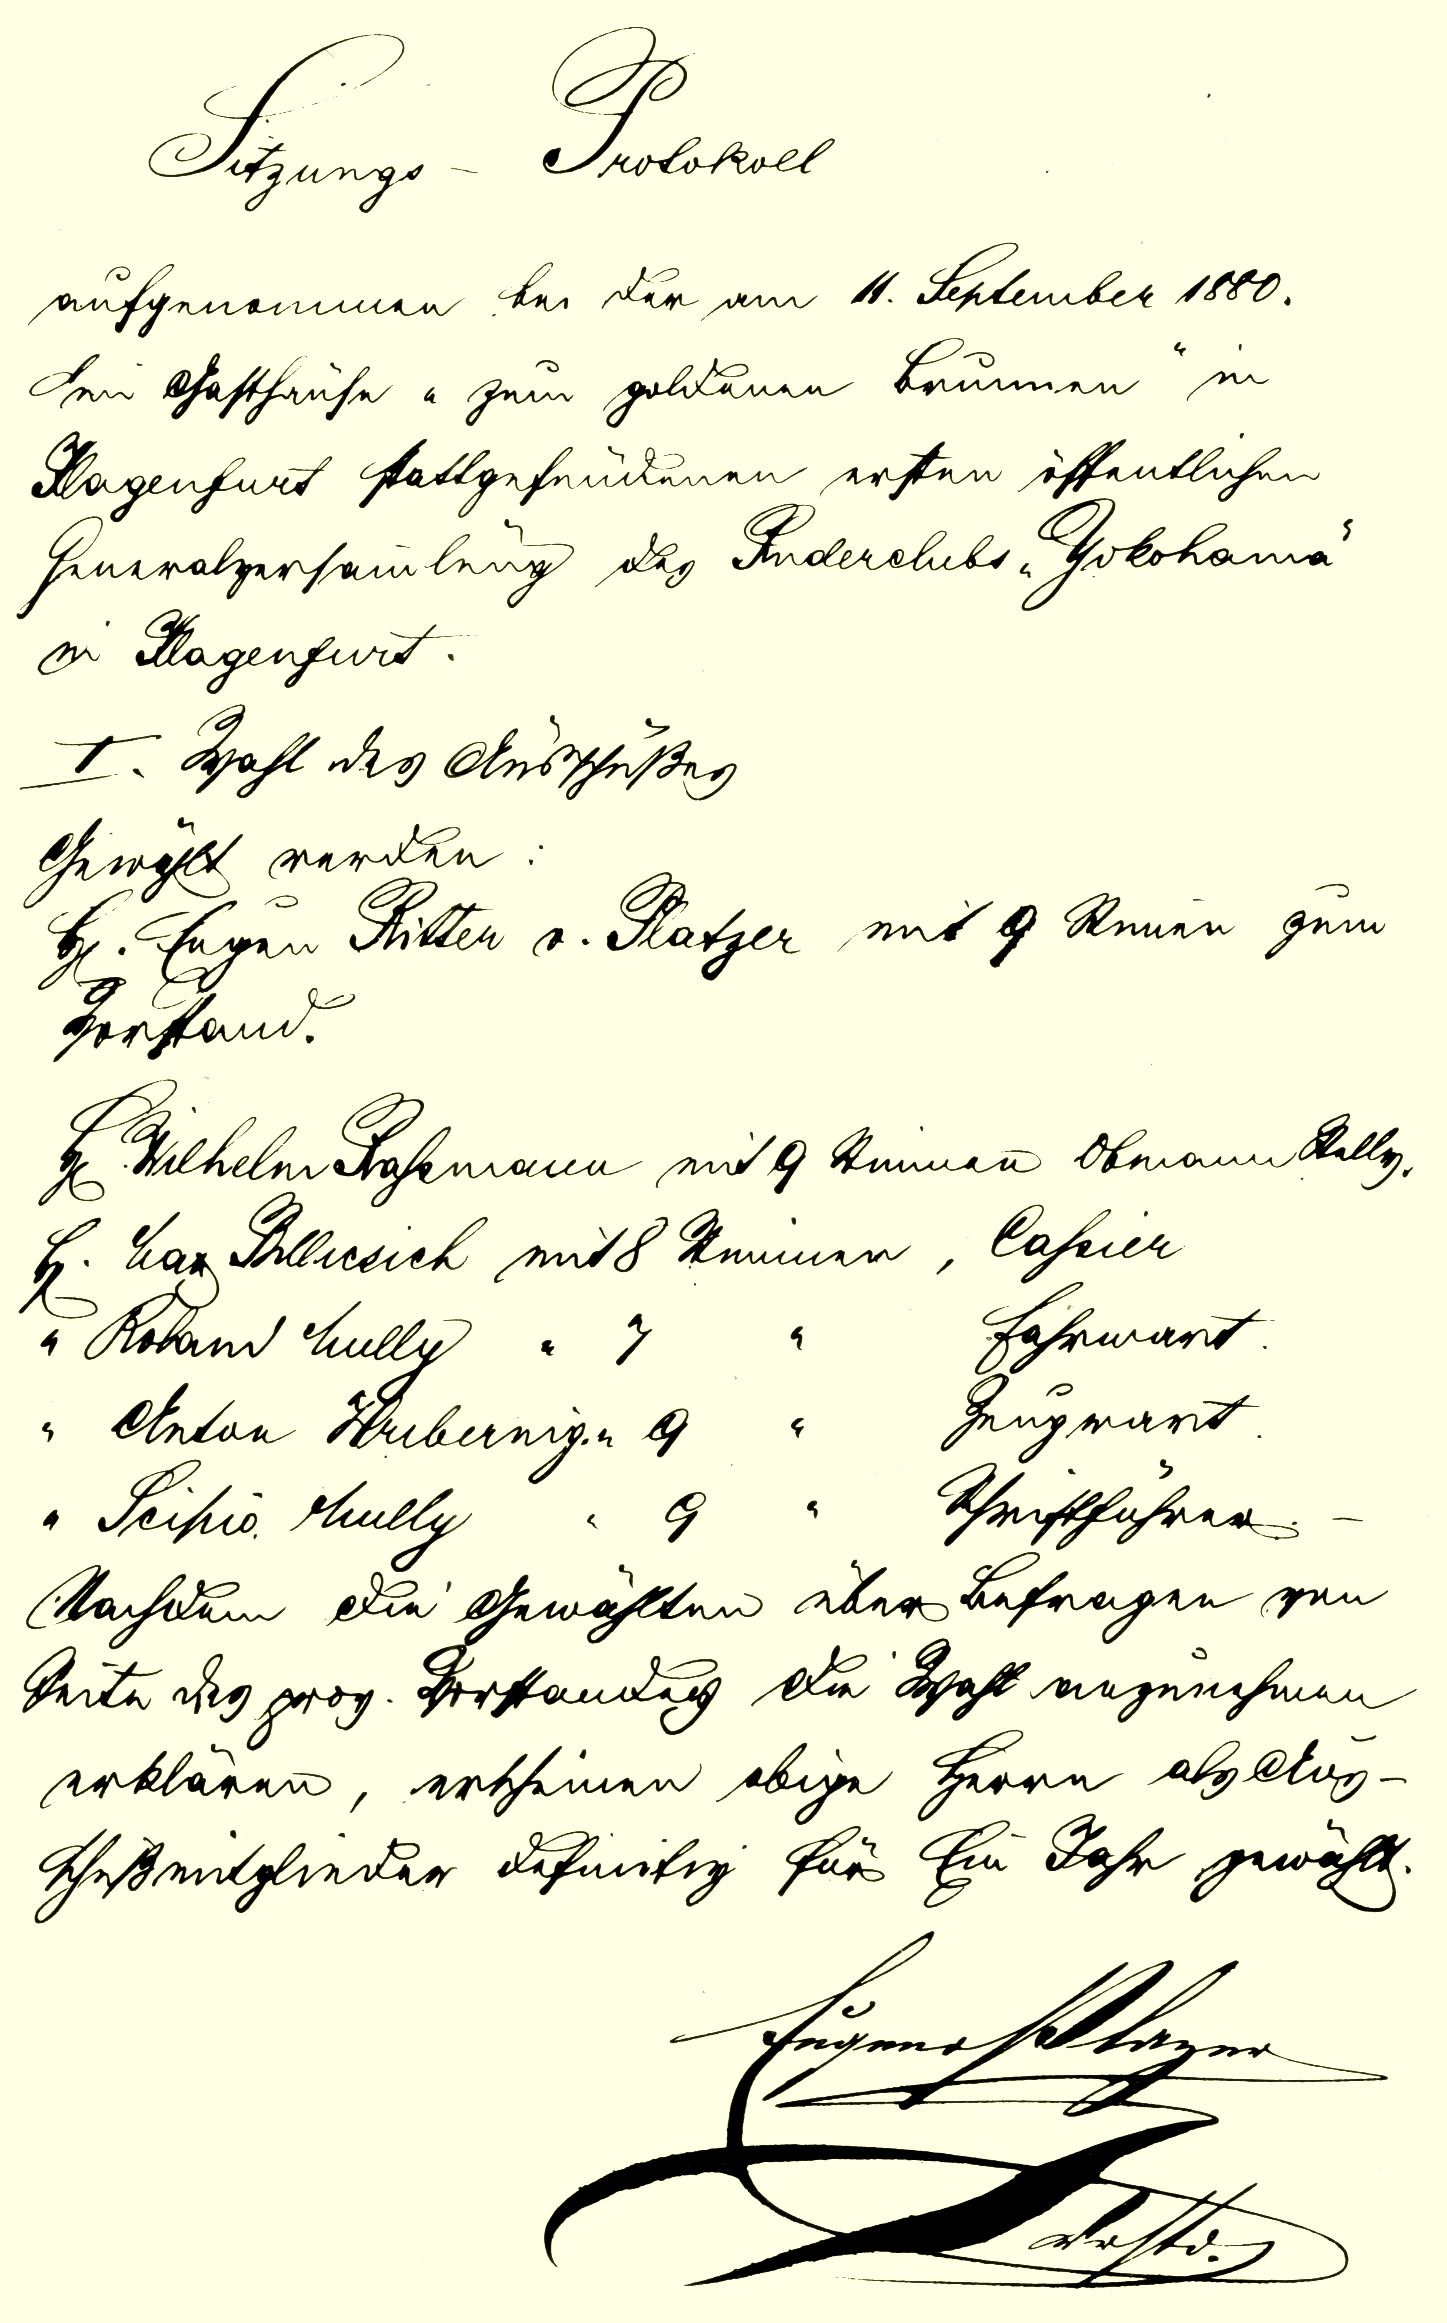 Sitzungs - Protokoll
aufgenommen bei der am 11. September 1880.
im Gasthause „zum goldenen Brunnen" in
Klagenfurt stattgefundenen ersten öffentlichen
Generalversam̄lung des Ruderclubs „Yokohama"
in Klagenfurt.
I. Wahl des Ausschußes
Gewählt werden:
H. Eugen Ritter v. Platzer mit 9 Stim̄en zum
Vorstand.
H. Wilhelm mit 9 Stimmen Obmann Stellv.
H. Max mit 8 Stimmen, Cassier
" Roland Mully " 7 " Fahrwart.
" Anton Hubernig. " 9 " Zeugwart.
" Scipio. Mully " 9 " Schriftführer. —
Nachdem die Gewählten über Befragen von
Seite des prov. Vorstandes die Wahl anzunehmen
erklären, erscheinen obige Herrn als Aus-
schußmitglieder definitiv für Ein Jahr gewählt.
Eugen Platzer
Vorstd.